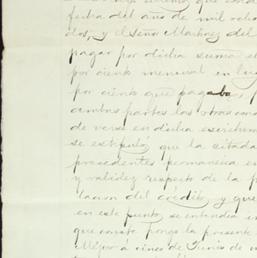 fecha del año de mil ocho
dos, y el Señor Martinez del
pagar por dicha suma el
por ciento mensual en lug
por ciento que pagaba, p
ambas partes las otras con
de verse en dicha escritura
se estipuló que la citada
precedentes permanecia en
y validez respecto de la p
lacion del crédito, y que
en este punto se entendia
que conste pongo la presente
Méjico á cinco de Junio de m